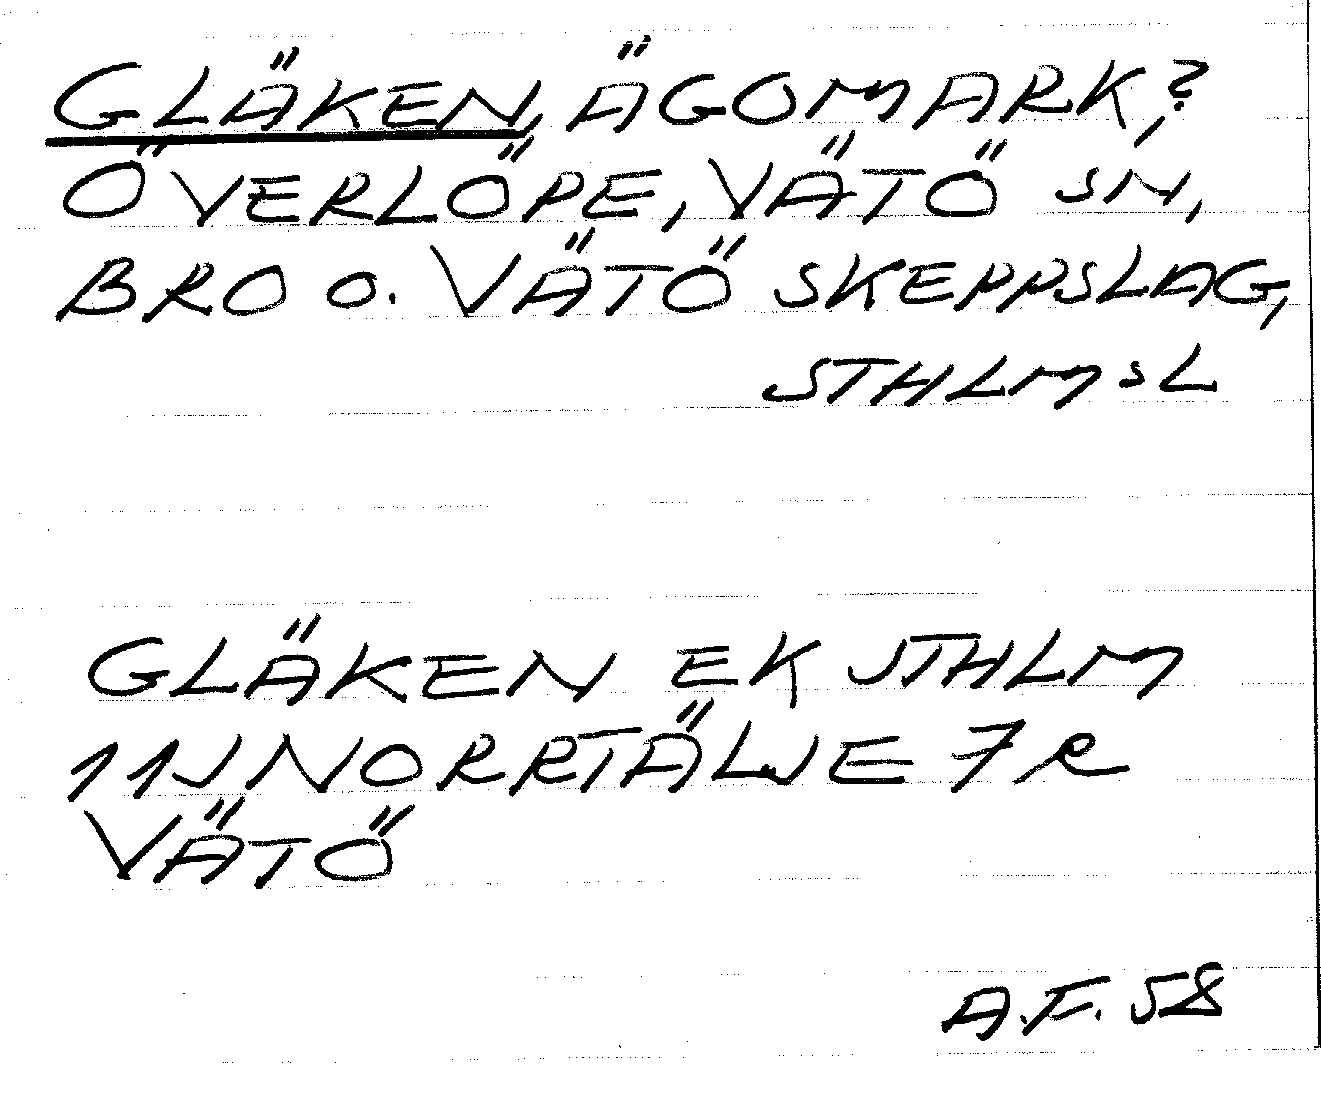 GLÄKEN, ÄGOMARK,?
ÖVERLÖPE, VÄTÖ SN,
BRO O. VÄTÖ SKEPPSLAG,
STHLM SL
GLÄKEN EK STHLM
11J NORRTÄLJE 7 R
VÄTÖ
A.F. 58